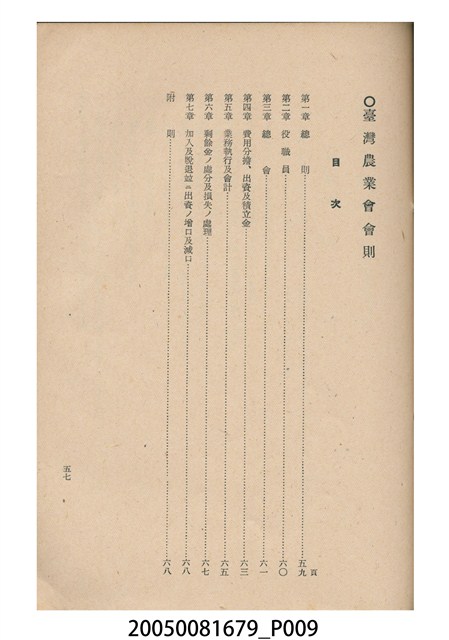 〇臺灣農業會會則
目次
頁
第一章 總則……五九
第二章 役職員……六〇
第三章 總會……六一
第四章 費用分擔、出資及積立金……六三
第五章 業務執行及會計……六五
第六章 剩餘金ノ處分及損失ノ處理……六七
第七章 加入及脫退竝ニ出資ノ增口及減口……六八
附則……六八
五七
20050081679_P009